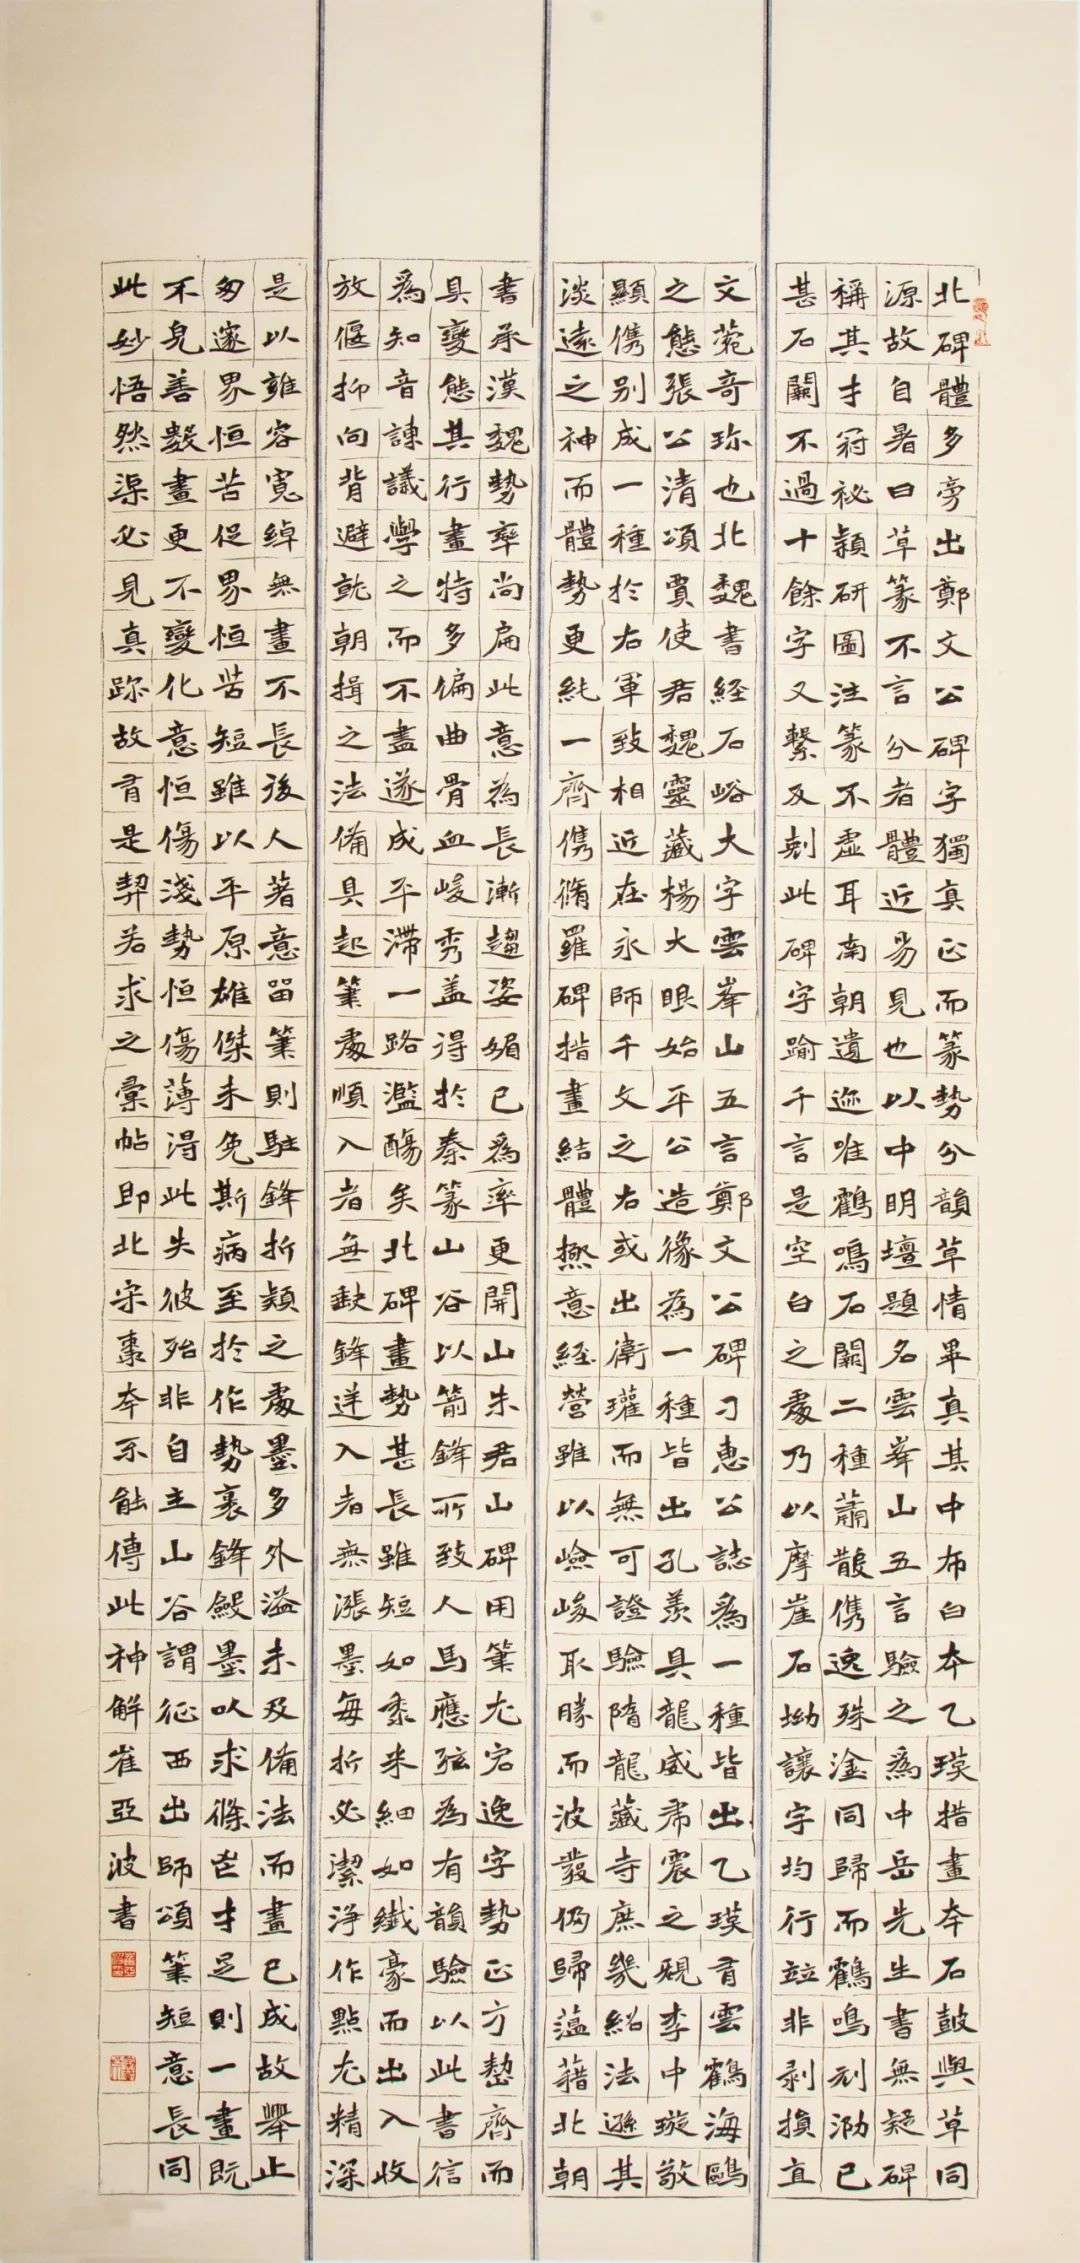 北碑體多旁出鄭文公碑字獨真正而篆勢分韻草情畢真其中布白本乙瑛措畫本石鼓與草同
源故自署曰草篆不言分者體近易見也以中明壇題名雲峯山五言驗之為中岳先生書無疑碑
稱其才冠祕穎研圖注篆不虛耳南朝遺迹唯鶴鳴石闕二種蕭散儁逸殊淦同歸而鶴鳴刓泐已
甚石闕不過十餘字又繫反刻此碑字踰千言是空白之處乃以摩崖石坳讓字均行竝非剥損直
文苑奇珍也北魏書經石峪大字雲峯山五言鄭文公碑刁惠公誌為一種皆出乙瑛有雲鶴海鷗
之態張公清頌賈使君魏靈藏楊大眼始平公造像為一種皆出孔羨具龍威虎震之規李中璇敬
顯儁别成一種於右軍致相近在永師千文之右或出衛瓘而無可證驗隋龍藏寺庶幾紹法遜其
淡遠之神而體勢更純一齊儁脩羅碑措畫結體撫意經營雖以嶮峻取勝而波發仍歸蘊藉北朝
書承漢魏勢率尚扁此意為長漸趨姿媚已為率更開山朱君山碑用筆尤宕逸字勢正方整齊而
具變態其行畫特多偏曲骨血峻秀盖得於秦篆山谷以箭鋒所致人馬應弦為有韻驗以此書信
為知音諫議學之而不盡遂成平滯一路濫觴矣北碑畫勢甚長雖短如黍米細如纖豪而出入收
放偃抑向背避就朝揖之法備具起筆處順入者無缺鋒逆入者無漲墨每折必潔淨作點尤精深
是以雍容寬綽無畫不長後人著意留筆則駐鋒折穎之處墨多外溢未及備法而畫已成故舉止
匆遽界恒苦促界恒苦短雖以平原雄傑未免斯病至於作勢裹鋒斂墨以求條芒才足則一畫既
不皃善數畫更不變化意恒傷淺勢恒傷薄得此失彼殆非自主山谷謂征西出師頌筆短意長同
此妙悟然渠必見真跡故有是契若求之彙帖即北宋棗本不能傳此神解崔亞波書